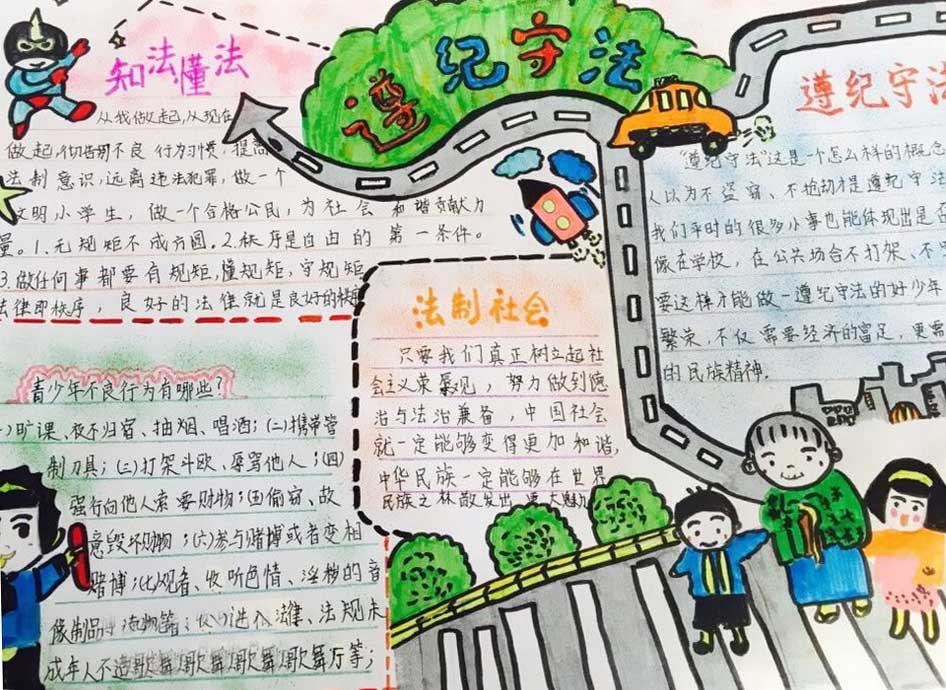 知法懂法
从我做起,从现在
做起,彻底告别不良行为习惯,提高
法制意识,远离违法犯罪,做一个
文明小学生,做一个合格公民,为社会和谐贡献力
量。1.无规矩不成方圆。2.秩序是自由的第一条件。
3.做任何事都要有规矩,懂规矩,守规矩
法律即秩序,良好的法律就是良好的秩序
青少年不良行为有哪些?
一)旷课、夜不归宿、抽烟、唱酒;(二)携带管
制刀具;(三)打架斗欧、辱骂他人;(四)
强行向他人索要财物;(五)偷窃、故
意毁坏财物;(六)参与赌博或者变相
赌博;(七)观看、收听色情、淫秽的音
像制品、读物等;(八)进入法律、法规未
成年人不适歌舞厅歌舞厅歌舞厅歌舞厅等;
遵纪守法
法制社会
只要我们真正树立起社
会主义荣辱观,努力做到德
治与法治兼备,中国社会
就一定能够变得更加和谐,
中华民族一定能够在世界
民族之林散发出更大魅力
遵纪守法
“遵纪守法”这是一个怎么样的概念
人以为不盗窃、不抢劫才是遵纪守法
我们平时的很多小事也能体现出是否
像在学校,在公共场合不打架、不
要这样才能做一遵纪守法的好少年
繁荣,不仅需要经济的富足,更需
的民族精神.